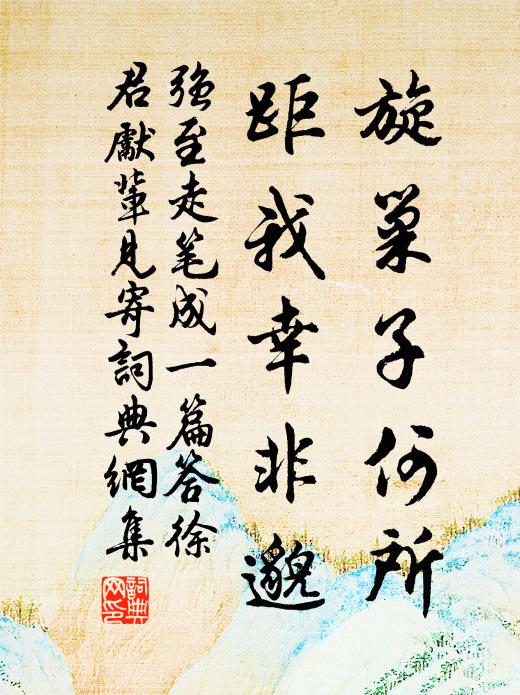 旋巢子何所
距我幸非邈
強至走笔成一篇答徐
君獻輩見寄詞典網集
詞典
网印